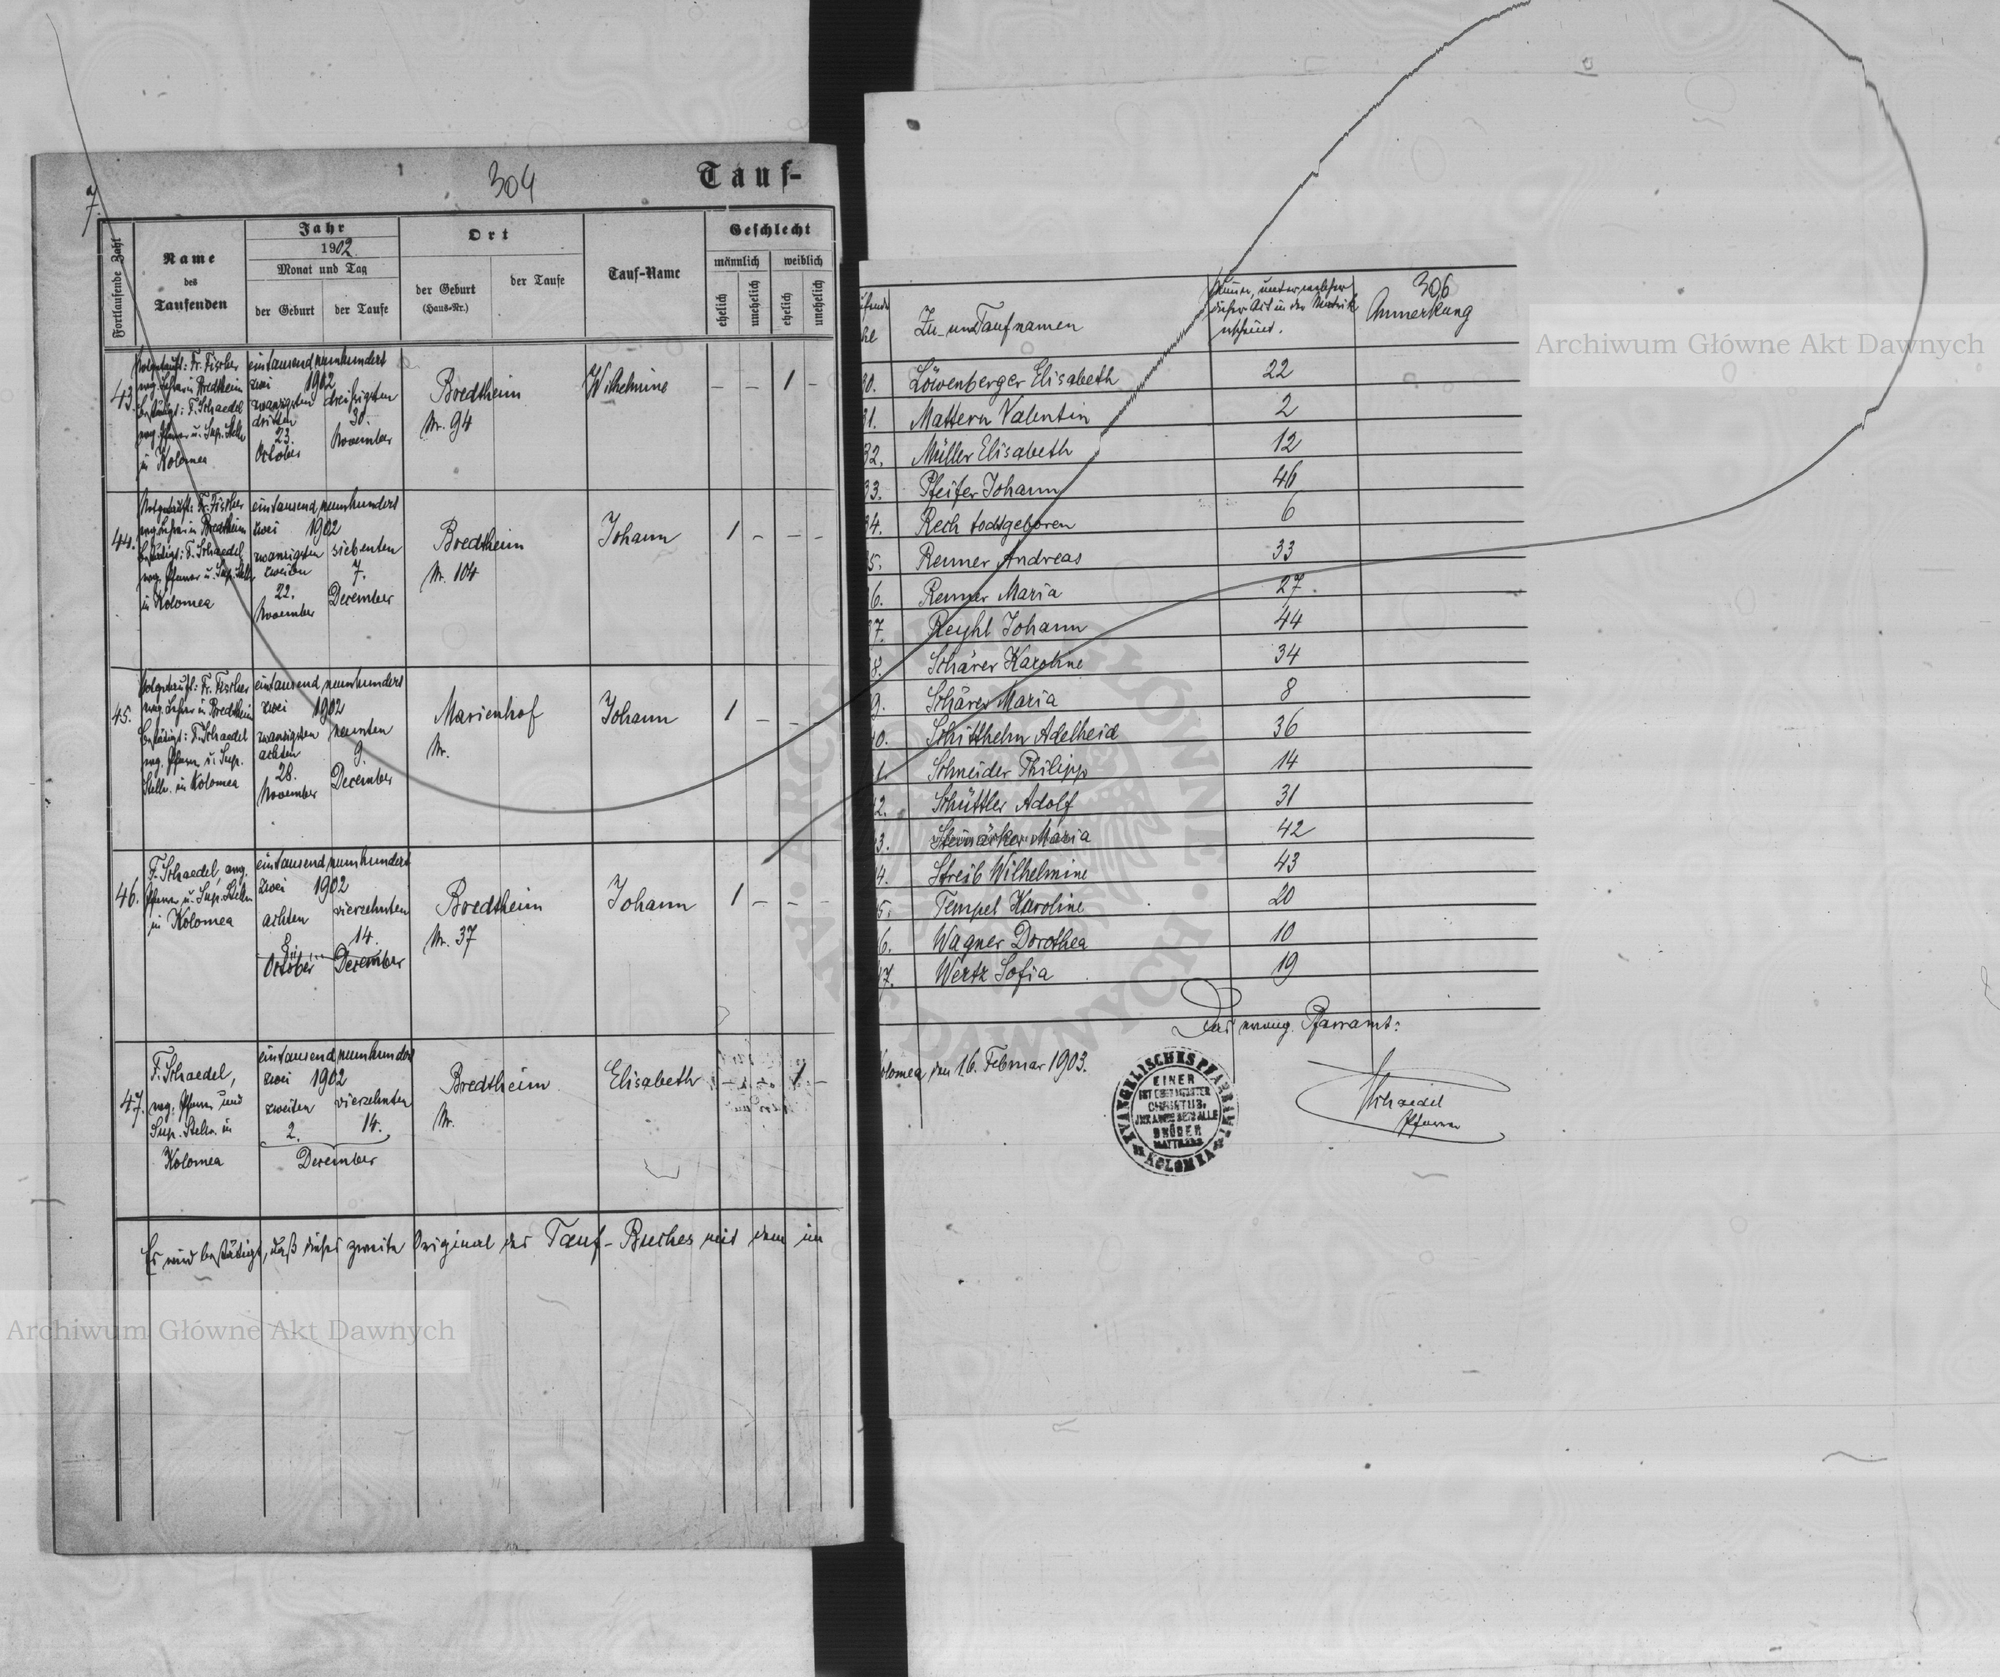 304
Tauf-
7.
Fortlaufende Zahl
Name
des
Taufenden
Jahr
1902
Monat und Tag
der Geburt
der Taufe
Ort
der Geburt
(Haus-Nr.)
der Taufe
Tauf-Name
Geschlecht
männlich
weiblich
ehelich
unehelich
ehelich
unehelich
43.
Notgetauft: Fr. Fischer
evg. Lehrer in Bredtheim
bestätigt: F. Schaedel
evg. Pfarrer u. Sup. Stellv.
in Kolomea
eintausend neunhundert
zwei 1902
zwanzigsten dreißigsten
dritten 30.
23. November
October
Bredtheim
Nr. 94
Wilhelmine
– – 1 –
44.
Notgetauft: Fr. Fischer
evg. Lehrer in Bredtheim
bestätigt: F. Schaedel
evg. Pfarrer u. Sup. Stellv.
in Kolomea
eintausend neunhundert
zwei 1902
zwanzigsten siebenten
zweiten 7.
22. December
November
Bredtheim
Nr. 104
Johann
1 – – –
45.
Notgetauft: Fr. Fischer
evg. Lehrer in Bredtheim
bestätigt: F. Schaedel
evg. Pfarrer u. Sup.
Stellv. in Kolomea
eintausend neunhundert
zwei 1902
zwanzigsten neunten
achten 9.
28. December
November
Marienhof
Nr.
Johann
1 – – –
46.
F. Schaedel, evg.
Pfarrer u. Sup. Stellv.
in Kolomea
eintausend neunhundert
zwei 1902
achten vierzehnten
8. 14.
October December
Bredtheim
Nr. 37
Johann
1 – – –
47.
F. Schaedel,
evg. Pfarrer und
Sup. Stellv. in
Kolomea
eintausend neunhundert
zwei 1902
zweiten vierzehnten
2. 14.
December
Bredtheim
Nr.
Elisabeth
– – 1 –
Es wird bestätigt, daß dieses zweite Original des Tauf-Buches mit dem im
306
Zu- und Taufnamen
Numer, unter welcher
dieser Act in der Matrik
erscheint.
Anmerkung
30. Löwenberger Elisabeth 22
31. Mattern Valentin 2
32. Müller Elisabeth 12
33. Pfeifer Johann 46
34. Rech todtgeboren 6
35. Renner Andreas 33
36. Renner Maria 27
37. Reyhl Johann 44
38. Schärer Karoline 34
39. Schärer Maria 8
40. Schitthelm Adelheid 36
41. Schneider Philipp 14
42. Schüttler Adolf 31
43. Maria 42
44. Streib Wilhelmine 43
45. Tempel Karoline 20
46. Wagner Dorothea 10
47. Wertz Sofia 19
Das evang. Pfarramt:
Kolomea, den 16. Februar 1903.
EVANGELISCHES PFARRAMT
KOLOMEA
EINER
IST EUER MEISTER
CHRISTUS,
IHR ABER SEID ALLE
BRÜDER
MATTH. 23,8
Schaedel
Pfarrer
Archiwum Główne Akt Dawnych
Archiwum Główne Akt Dawnych
ARCHIWUM GŁÓWNE AKT DAWNYCH